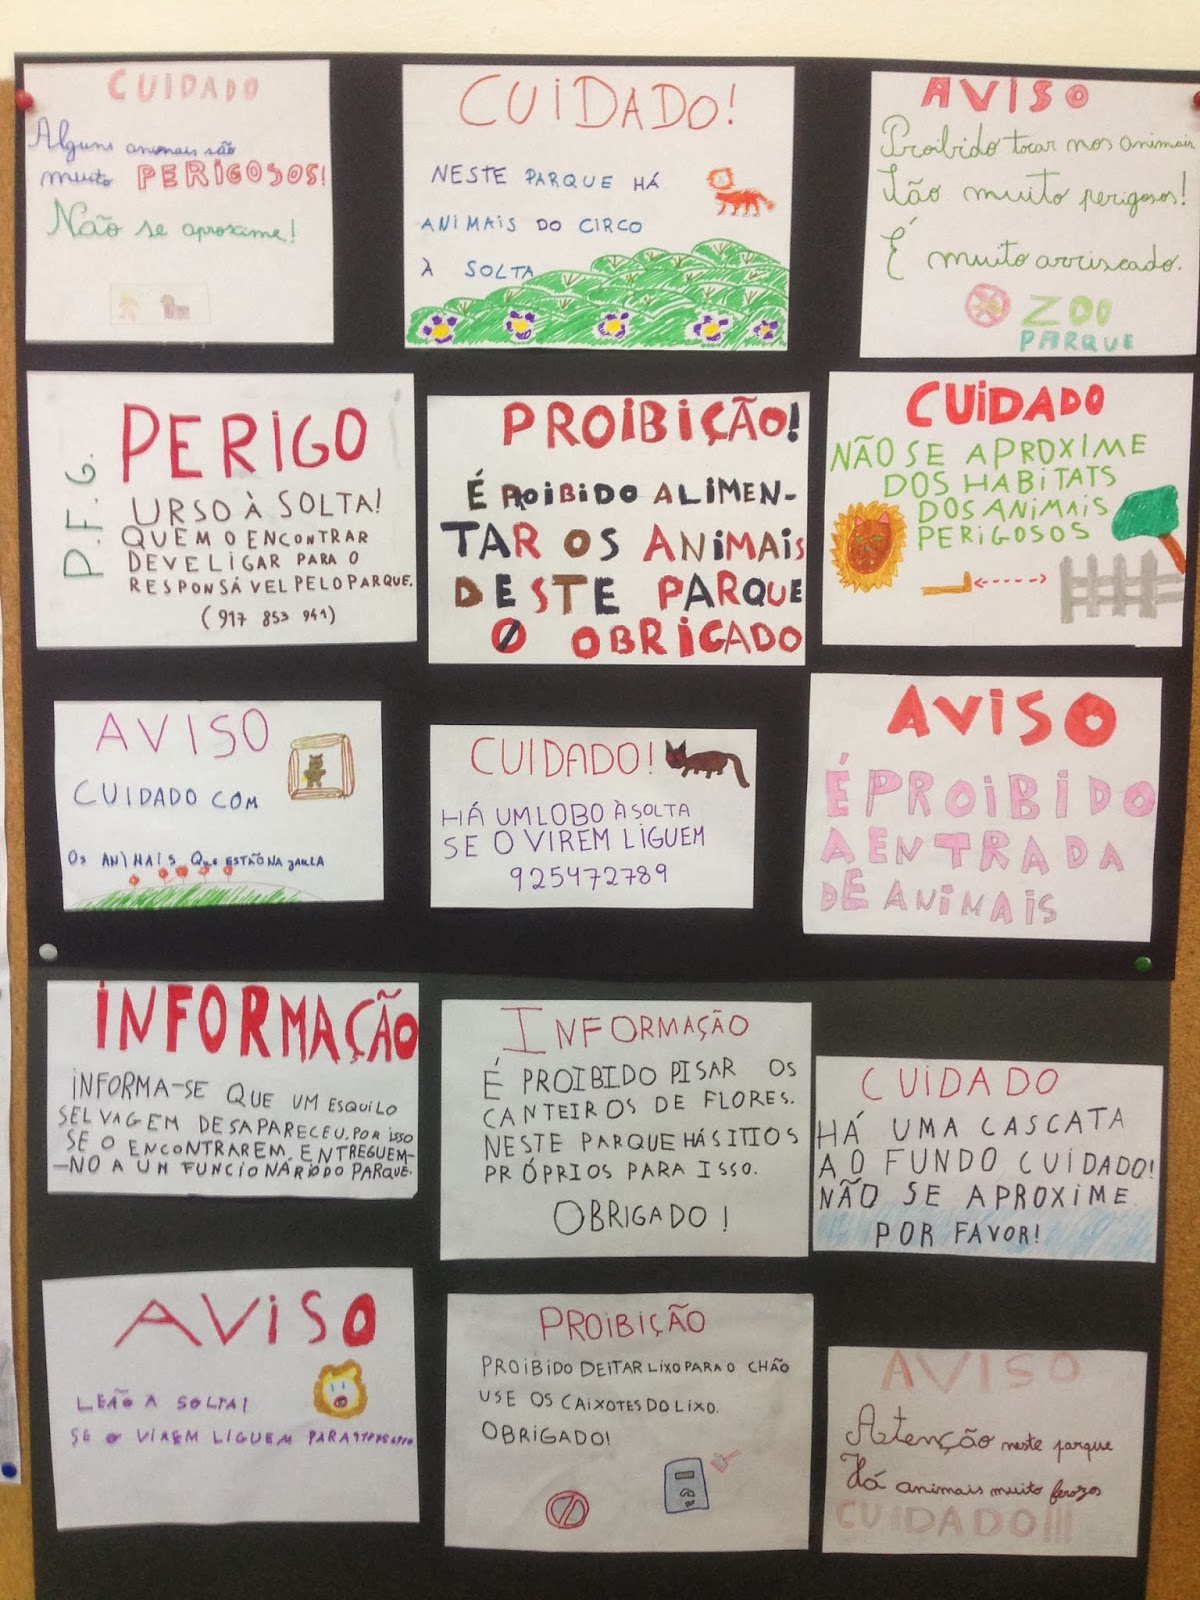 CUIDADO
Alguns animais são
muito PERIGOSOS!
Não se aproxime!
CUIDADO!
NESTE PARQUE HÁ
ANIMAIS DO CIRCO
À SOLTA
AVISO
Proibido tocar nos animais.
São muito perigosos!
É muito arriscado.
ZOO
PARQUE
P.F.G.
PERIGO
URSO À SOLTA!
QUEM O ENCONTRAR
DEVE LIGAR PARA O
RESPONSÁVEL PELO PARQUE.
(917 853 941)
PROIBIÇÃO!
É PROIBIDO ALIMEN-
TAR OS ANIMAIS
DESTE PARQUE
OBRIGADO
CUIDADO
NÃO SE APROXIME
DOS HABITATS
DOS ANIMAIS
PERIGOSOS
AVISO
CUIDADO COM
OS ANIMAIS QUE ESTÃO NA JAULA
CUIDADO!
HÁ UM LOBO À SOLTA
SE O VIREM LIGUEM
925472789
AVISO
É PROIBIDO
A ENTRADA
DE ANIMAIS
INFORMAÇÃO
INFORMA-SE QUE UM ESQUILO
SELVAGEM DESAPARECEU. POR ISSO
SE O ENCONTRAREM, ENTREGUEM-
-NO A UM FUNCIONÁRIO DO PARQUE.
INFORMAÇÃO
É PROIBIDO PISAR OS
CANTEIROS DE FLORES.
NESTE PARQUE HÁ SITIOS
PRÓPRIOS PARA ISSO.
OBRIGADO!
CUIDADO
HÁ UMA CASCATA
AO FUNDO, CUIDADO!
NÃO SE APROXIME.
POR FAVOR!
AVISO
LEÃO A SOLTA!
SE O VIREM LIGUEM PARA
PROIBIÇÃO
PROIBIDO DEITAR LIXO PARA O CHÃO
USE OS CAIXOTES DO LIXO.
OBRIGADO!
AVISO
Atenção neste parque
Há animais muito ferozes
CUIDADO!!!